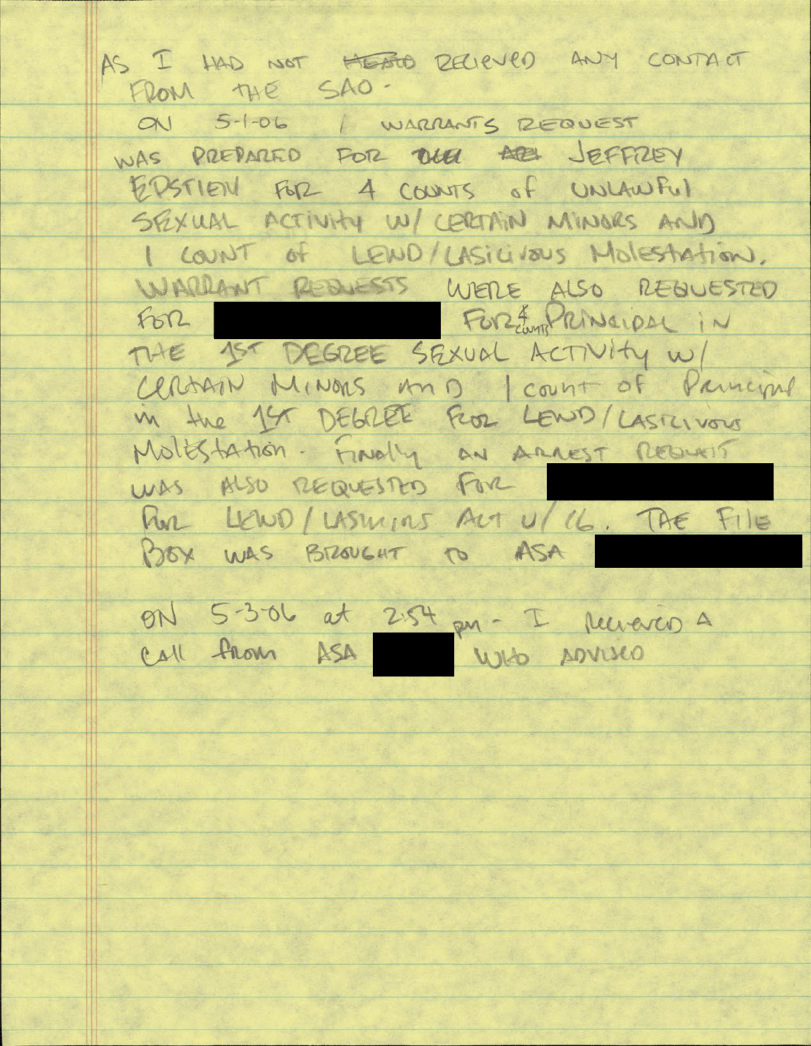 AS I HAD NOT RECIEVED ANY CONTACT
FROM THE SAO.
ON 5-1-06 1 WARRANTS REQUEST
WAS PREPARED FOR JEFFREY
EPSTIEN FOR 4 COUNTS of UNLAWFUL
SEXUAL ACTIVITY W/ CERTAIN MINORS AND
1 COUNT of LEWD/LASICIVOUS MOLESTATION.
WARRANT REQUESTS WERE ALSO REQUESTED
FOR FOR 4 COUNTS PRINCIPAL IN
THE 1ST DEGREE SEXUAL ACTIVITY W/
CERTAIN MINORS AND 1 COUNT of Principal
in the 1ST DEGREE FOR LEWD/LASICIVOUS
MOLESTATION. Finally AN ARREST REQUEST
WAS ALSO REQUESTED FOR
FOR LEWD/ ACT U/16. THE FILE
BOX WAS BROUGHT TO ASA
ON 5-3-06 at 2:54 pm - I RECIEVED A
CALL from ASA WHO ADVISED